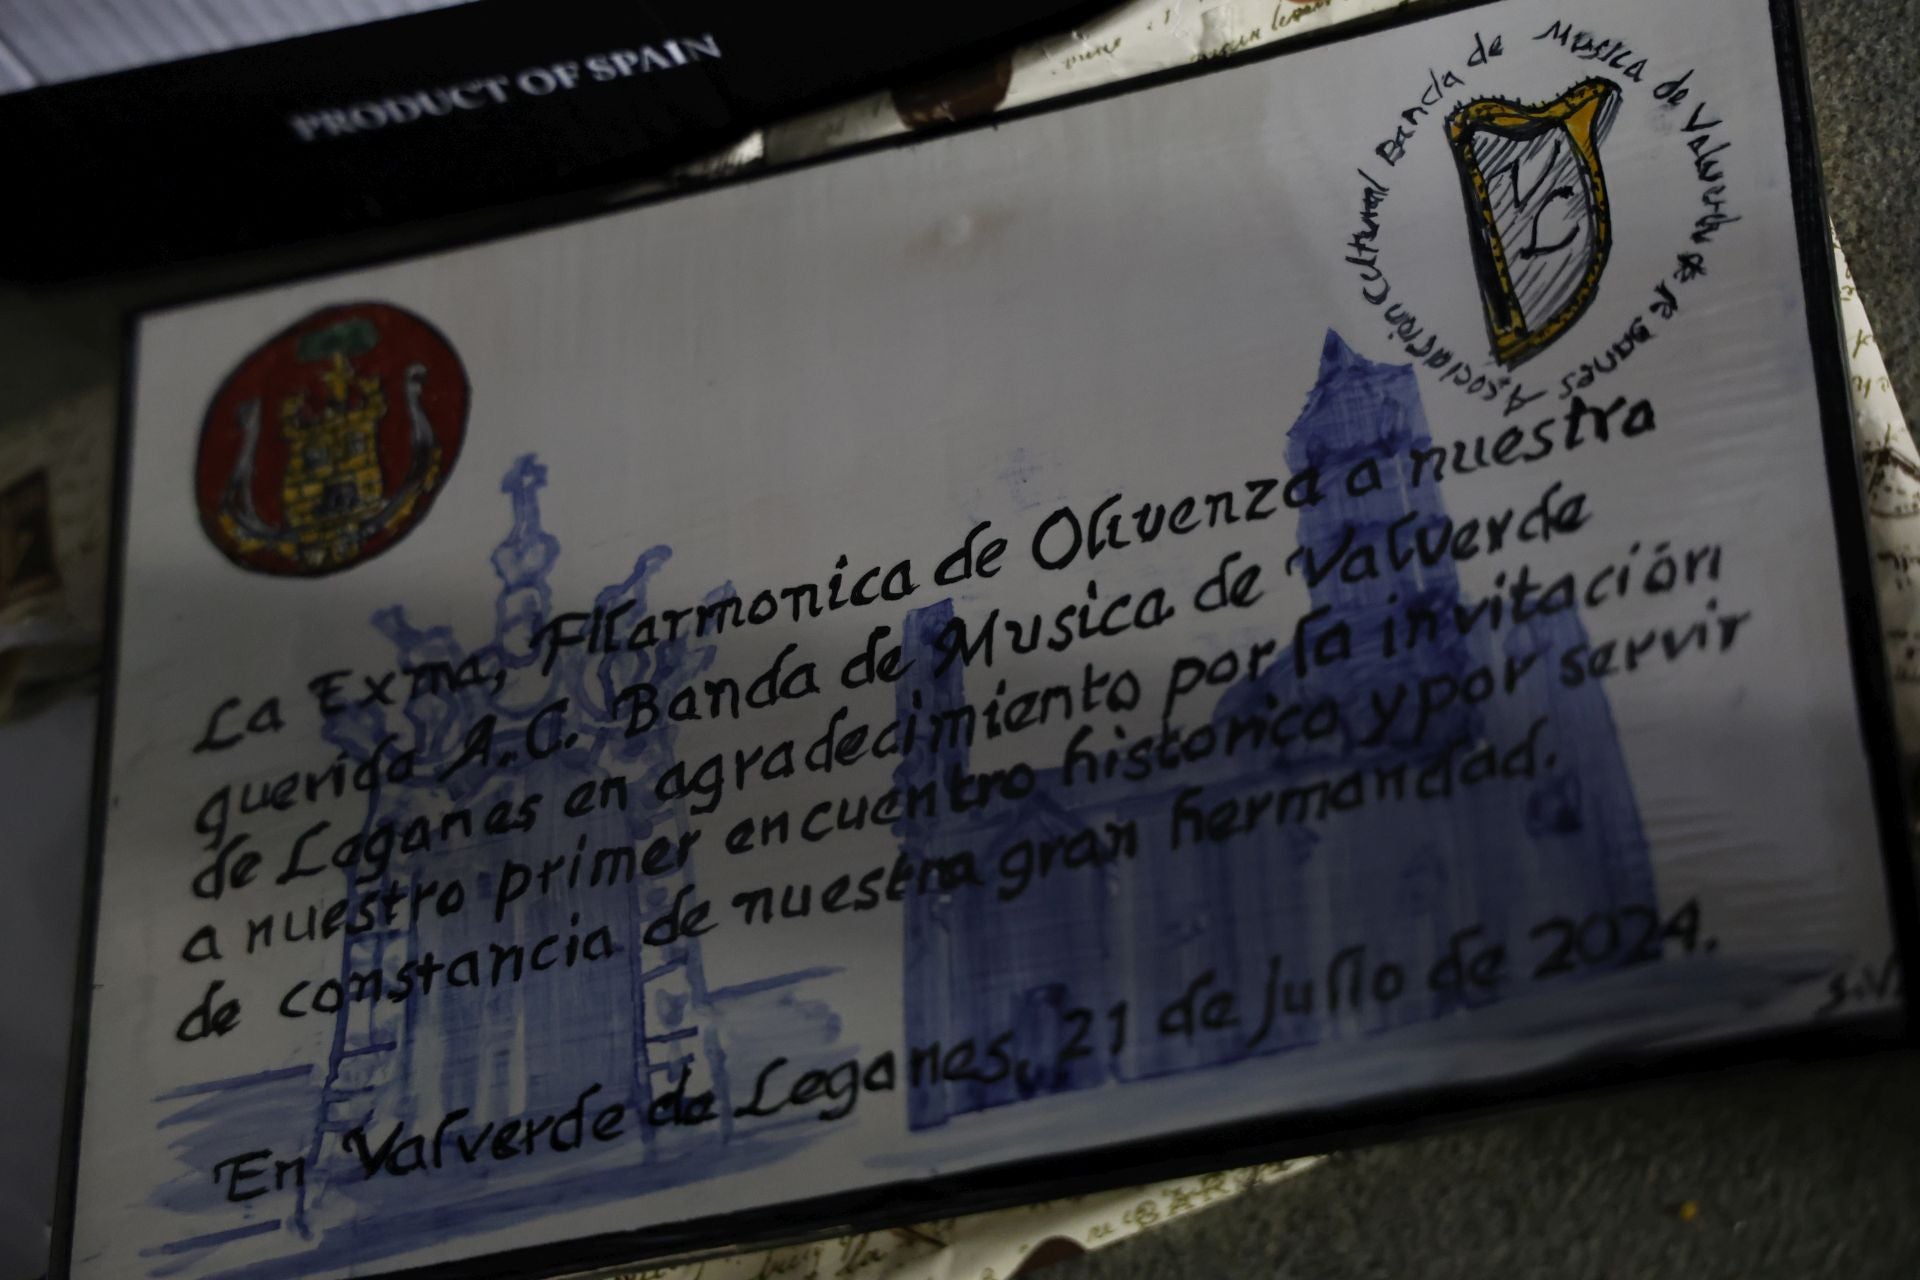 PRODUCT OF SPAIN
Asociación Cultural Banda de Musica de Valverde de Leganes
VL
La Exma, Filarmonica de Olivenza a nuestra
querida A.C. Banda de Musica de Valverde
de Leganes en agradecimiento por la invitación
a nuestro primer encuentro historico y por servir
de constancia de nuestra gran hermandad.
En Valverde de Leganes, 21 de julio de 2024.